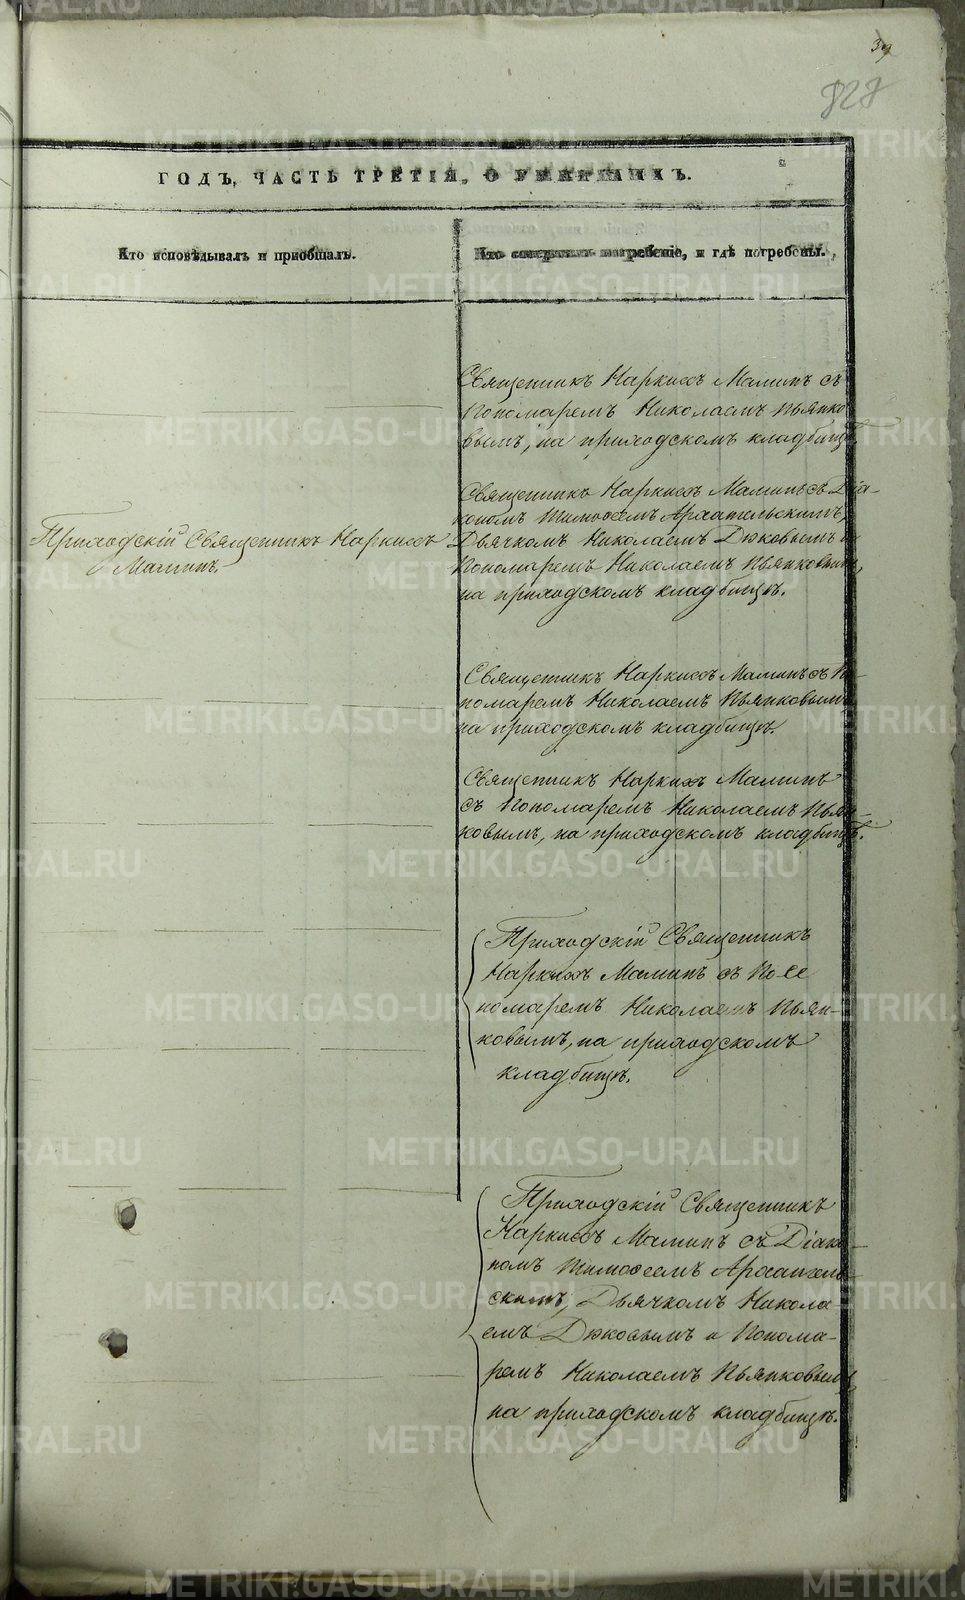 39
828
ГОДЪ, ЧАСТЬ ТРЕТІЯ, О УМЕРШИХЪ.
Кто исповѣдывалъ и пріобщалъ.
Кто совершалъ погребеніе, и гдѣ погребены.
Священникъ Наркисъ Маминъ съ
Пономаремъ Николаемъ Пьянко
вымъ, на приходскомъ кладбищѣ.
Священникъ Наркисъ Маминъ съ Діа-
кономъ Тимоѳеемъ Архангельскимъ,
Дьячкомъ Николаемъ Дюковымъ и
Пономаремъ Николаемъ Пьянковымъ,
на приходскомъ кладбищѣ.
Приходскій Священникъ Наркисъ
Маминъ.
Священникъ Наркисъ Маминъ съ По-
номаремъ Николаемъ Пьянковымъ
на приходскомъ кладбищѣ.
Священникъ Наркисъ Маминъ
съ Пономаремъ Николаемъ Пьян-
ковымъ, на приходскомъ кладбищѣ.
Приходскій Священникъ
Наркисъ Маминъ съ По
номаремъ Николаемъ Пьян-
ковымъ, на приходскомъ
кладбищѣ.
Приходскій Священникъ
Наркисъ Маминъ съ Діако-
номъ Тимоѳеемъ Архангель-
скимъ, Дьячкомъ Никола-
емъ Дюковымъ и Понома-
ремъ Николаемъ Пьянковымъ,
на приходскомъ кладбищѣ.
METRIKI.GASO-URAL.RU